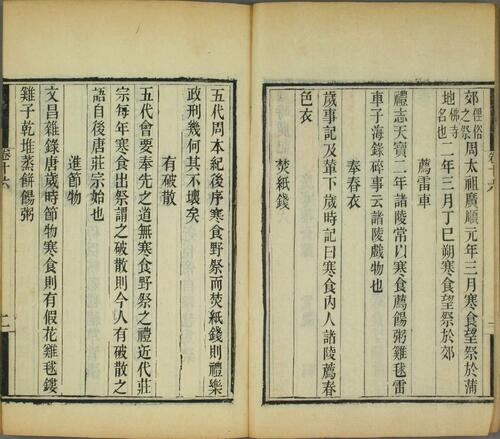 郊俚俗之祭周太祖廣順元年三月寒食望祭於蒲
地佛寺名也二年三月丁巳朔寒食望祭於郊
薦雷車
禮志天寶二年諸陵常以寒食薦餳粥雞毬雷
車子海錄碎事云諸陵戲物也
奉春衣
歲事記及輦下歲時記曰寒食內人諸陵薦春
色衣
焚紙錢
五代周本紀後序寒食野祭而焚紙錢則禮樂
政刑幾何其不壞矣
有破散
五代會要奉先之道無寒食野祭之禮近代莊
宗每年寒食出祭謂之破散則今人有破散之
語自後唐莊宗始也
進節物
文昌雜錄唐歲時節物寒食則有假花雞毬鏤
雞子乾堆蒸餅餳粥
卷十六
二